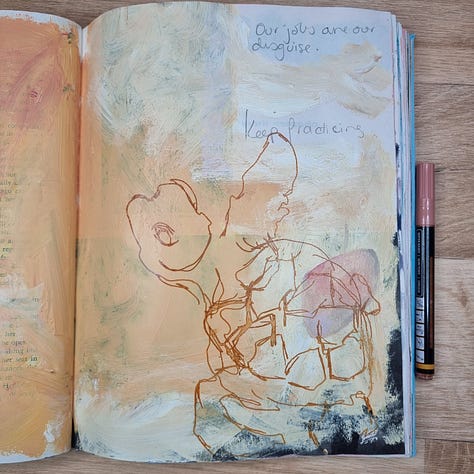 Our jobs are our
disguise.
Keep Practicing